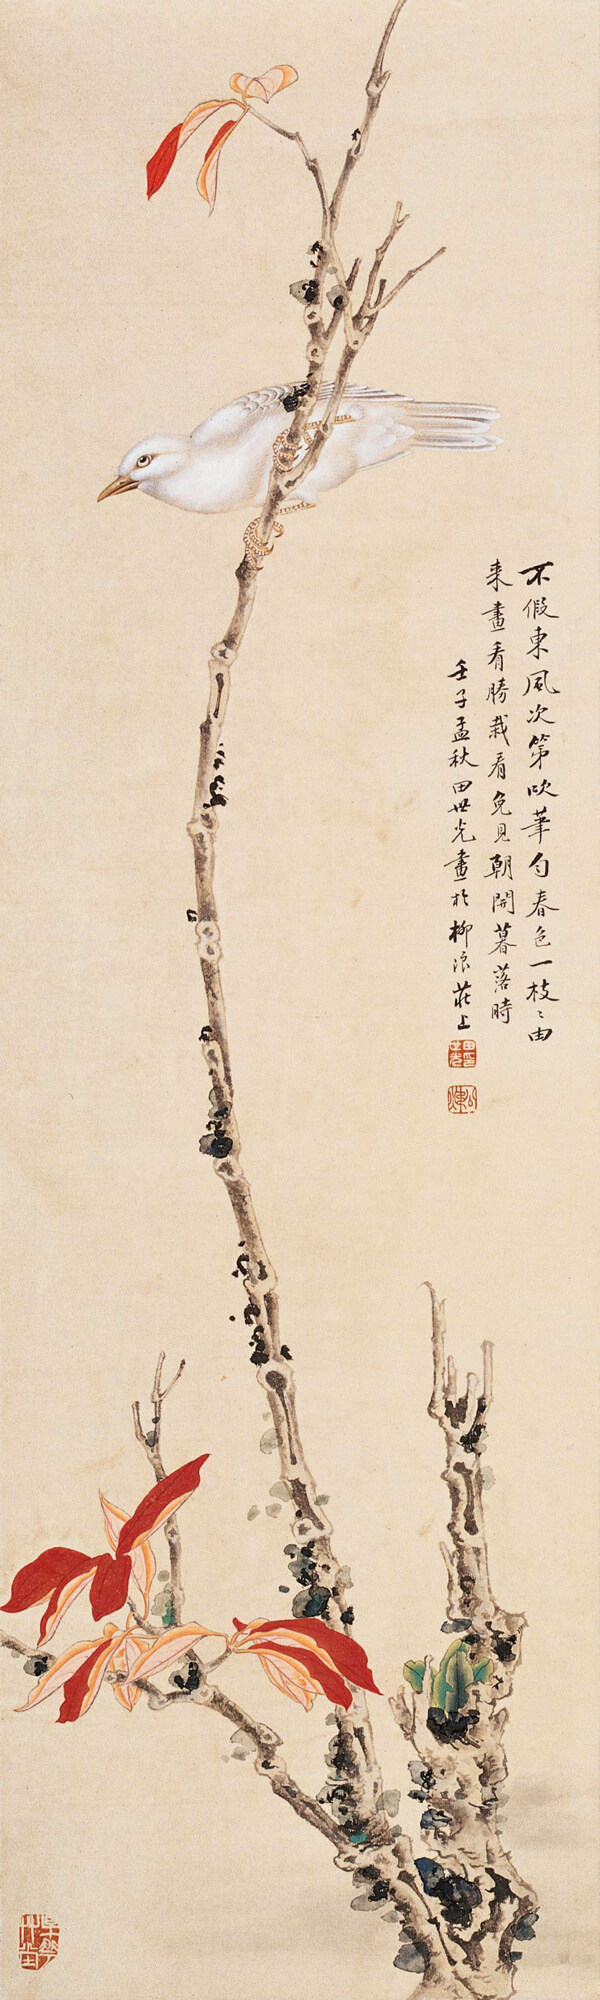 不假東風次第吹筆勻春色一枝〻由
来畫看勝栽看免見朝開暮落時
壬子孟秋田世光畫於柳浪莊上